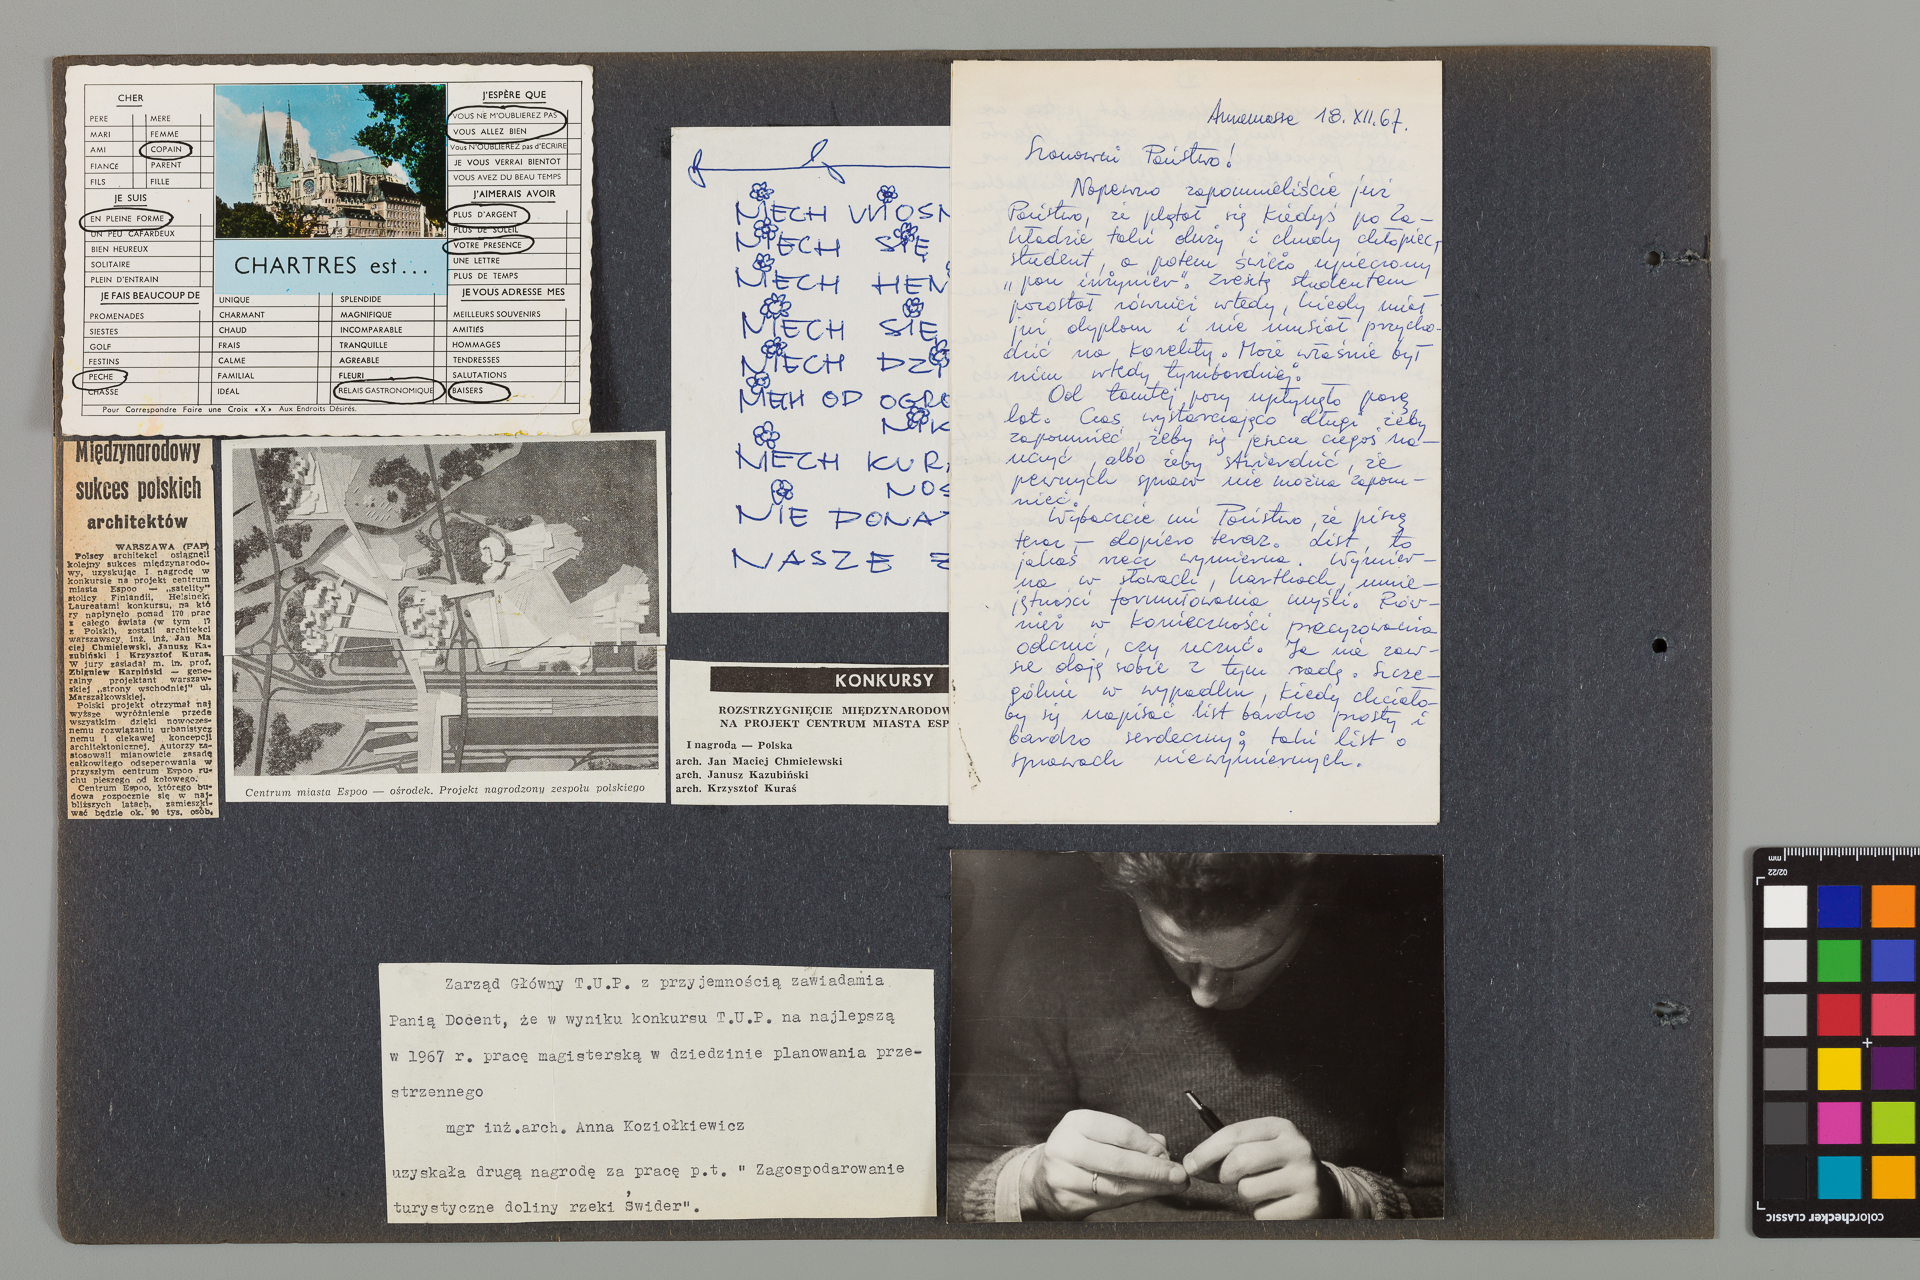 CHER
PERE
MERE
MARI
FEMME
AMI
COPAIN
FIANCE
PARENT
FILS
FILLE
JE SUIS
EN PLEINE FORME
UN PEU CAFARDEUX
BIEN HEUREUX
SOLITAIRE
PLEIN D'ENTRAIN
JE FAIS BEAUCOUP DE
PROMENADES
SIESTES
GOLF
FESTINS
PECHE
CHASSE
CHARTRES est...
UNIQUE
CHARMANT
CHAUD
FRAIS
CALME
FAMILIAL
IDEAL
SPLENDIDE
MAGNIFIQUE
INCOMPARABLE
TRANQUILLE
AGREABLE
FLEURI
RELAIS GASTRONOMIQUE
J'ESPÈRE QUE
VOUS NE M'OUBLIEREZ PAS
VOUS ALLEZ BIEN
Vous N'OUBLIEREZ pas d'ECRIRE
JE VOUS VERRAI BIENTOT
VOUS AVEZ DU BEAU TEMPS
J'AIMERAIS AVOIR
PLUS D'ARGENT
PLUS DE SOLEIL
VOTRE PRESENCE
UNE LETTRE
PLUS DE TEMPS
JE VOUS ADRESSE MES
MEILLEURS SOUVENIRS
AMITIÉS
HOMMAGES
TENDRESSES
SALUTATIONS
BAISERS
Pour Correspondre Faire une Croix «X» Aux Endroits Désirés.
Międzynarodowy
sukces polskich
architektów
WARSZAWA (PAP)
Polscy architekci osiągnęli
kolejny sukces międzynarodo-
wy, uzyskując I nagrodę w
konkursie na projekt centrum
miasta Espoo — „satelity"
stolicy Finlandii, Helsinek.
Laureatami konkursu, na któ
ry napłynęło ponad 170 prac
z całego świata (w tym 17
z Polski), zostali architekci
warszawscy inż. inż. Jan Ma
ciej Chmielewski, Janusz Ka-
zubiński i Krzysztof Kuraś.
W jury zasiadał m. in. prof.
Zbigniew Karpiński — gene-
ralny projektant warszaw-
skiej „strony wschodniej" ul.
Marszałkowskiej.
Polski projekt otrzymał naj
wyższe wyróżnienie przede
wszystkim dzięki nowoczes-
nemu rozwiązaniu urbanistycz
nemu i ciekawej koncepcji
architektonicznej. Autorzy za-
stosowali mianowicie zasadę
całkowitego odseperowania w
przyszłym centrum Espoo ru-
chu pieszego od kołowego.
Centrum Espoo, którego bu-
dowa rozpocznie się w naj-
bliższych latach, zamieszki-
wać będzie ok. 90 tys. osób.
Centrum miasta Espoo — ośrodek. Projekt nagrodzony zespołu polskiego
NIECH WIOSN
NIECH SIĘ
NIECH HEN
NIECH SIĘ
NIECH DZI
NIEH OD OGRO
NIK
NIECH KUR
NOS
NIE DONA
NASZE Z
KONKURSY
ROZSTRZYGNIĘCIE MIĘDZYNARODOW
NA PROJEKT CENTRUM MIASTA ESP
I nagroda — Polska
arch. Jan Maciej Chmielewski
arch. Janusz Kazubiński
arch. Krzysztof Kuraś
Annemasse 18.XII.67.
Szanowni Państwo!
Napewno zapomnieliście już
Państwo, że plątał się kiedyś po Za-
kładzie taki duży i chudy chłopiec,
student, a potem świeżo upieczony
„pan inżynier". Zresztą studentem
pozostał również wtedy, kiedy miał
już dyplom i nie musiał przycho-
dzić na korekty. Może właśnie był
nim wtedy tymbardziej.
Od tamtej pory upłynęło parę
lat. Czas wystarczająco długi żeby
zapomnieć, żeby się jeszcze czegoś na-
uczyć, albo żeby stwierdzić, że
pewnych spraw nie można zapom-
nieć.
Wybaczcie mi Państwo, że piszę
teraz, – dopiero teraz. List, to
jakaś rzecz wymierna. Wymier-
na w słowach, kartkach, umie-
jętności formułowania myśli. Rów-
nież w konieczności precyzowania
odczuć, czy uczuć. Ja nie zaw-
sze daję sobie z tym radę. Szcze-
gólnie w wypadku, kiedy chciało-
by się napisać list bardzo prosty i
bardzo serdeczny; taki list o
sprawach niewymiernych.
Zarząd Główny T.U.P. z przyjemnością zawiadamia
Panią Docent, że w wyniku konkursu T.U.P. na najlepszą
w 1967 r. pracę magisterską w dziedzinie planowania prze-
strzennego
mgr inż.arch. Anna Koziołkiewicz
uzyskała drugą nagrodę za pracę p.t. " Zagospodarowanie
turystyczne doliny rzeki Świder".
mm
02/22
colorchecker CLASSIC